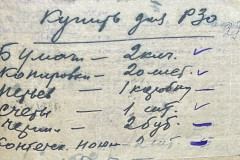 Купить для РЗО
Бумаги — 2 кил.
Копировки — 20 лист.
Перьев — 1 коробку
Счеты — 1 шт.
Чернил — 2 буб.
Контеск. —